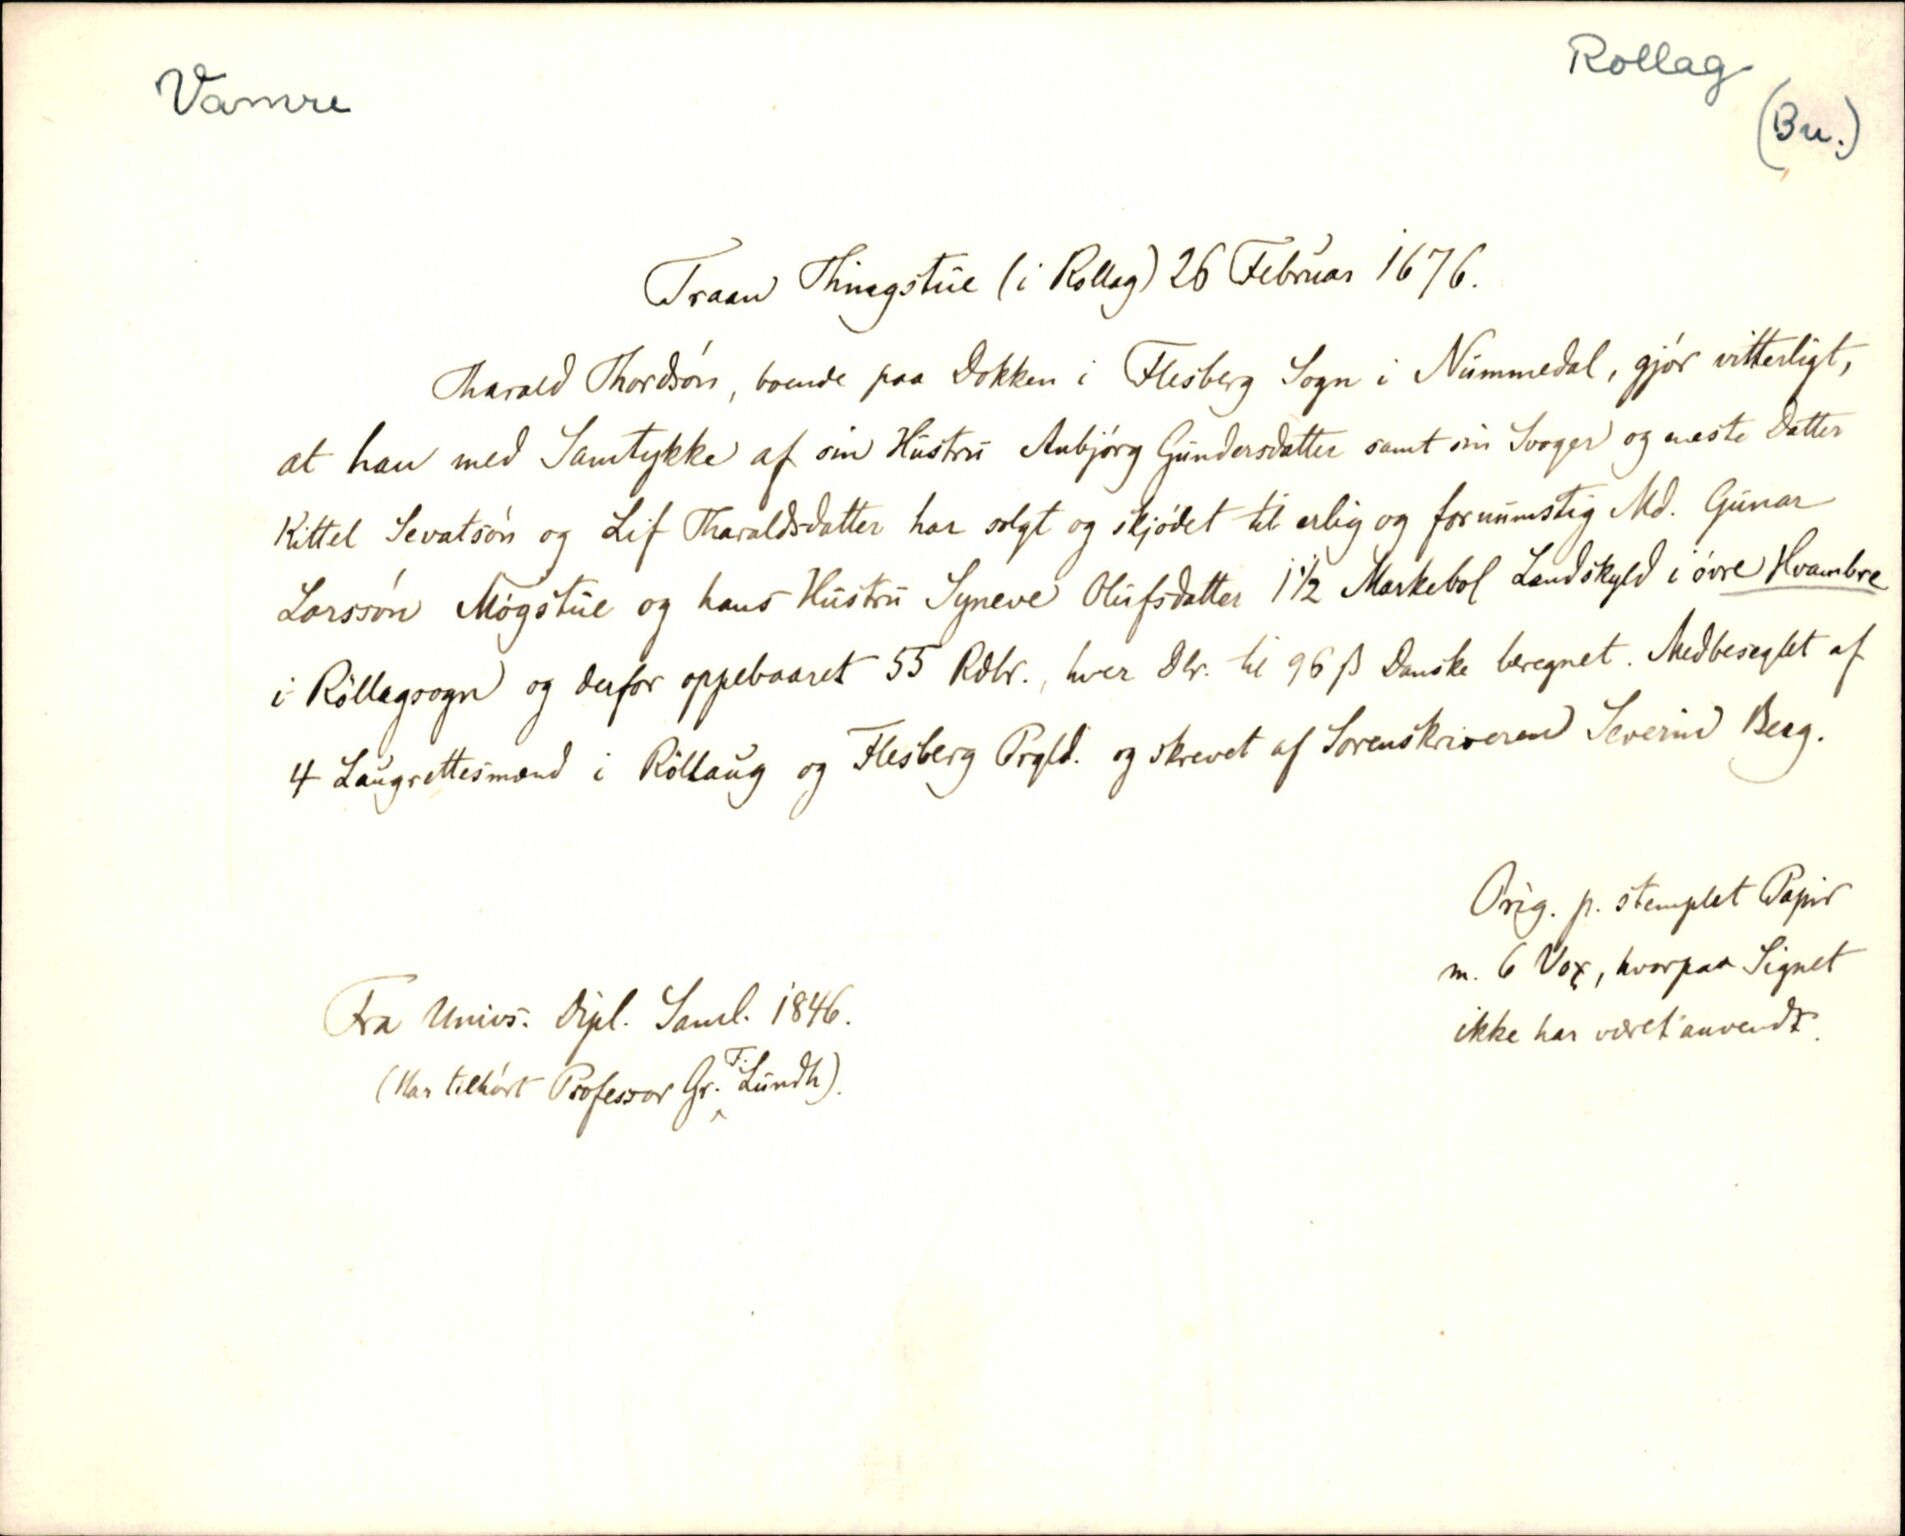 Vamre
Rollag
(Bu.)
Traan Thingstue (i Rollag) 26 Februar 1676.
Tharald Thordsön, boende paa Dokken i Flesberg Sogn i Nummedal, gjör vitterligt,
at han med Samtykke af sin Hustru Anbjörg Gundersdatter samt sin Svoger og neste Datter
Kittel Sevatsön og Lif Tharaldsdatter har solgt og skjödet til erlig og fornumstig Md. Gunar
Larssön Mögstue og hans Hustru Syneve Olufsdatter 1 1/2 Markebol Landskyld i övre Hvambre
i Röllagsogn og derfor oppebaaret 55 Rdlr., hver Dlr. til 96 ß Danske beregnet. Medbeseglet af
4 Laugrettesmænd i Röllaug og Flesberg Prgld. og skrevet af Sorenskriveren Severin Berg.
Orig. p. stemplet Papir
m. 6 Vox, hvorpaa Signet
ikke har været anvendt.
Fra Univs. Dipl. Saml. 1846.
(Har tilhört Professor Gr. F. Lundh).